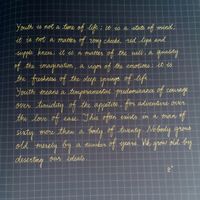 Youth is not a time of life ; it is a state of mind,
it is not a matter of rosy cheeks, red lips and
supple knees; it is a matter of the will, a quality
of the imagination, a vigor of the emotions; it is
the freshness of the deep springs of life.
Youth means a temperamental predominance of courage
over timidity of the appetite, for adventure over
the love of ease. This often exists in a man of
sixty more than a body of twenty. Nobody grows
old merely by a number of years. We grow old by
deserting our ideals.